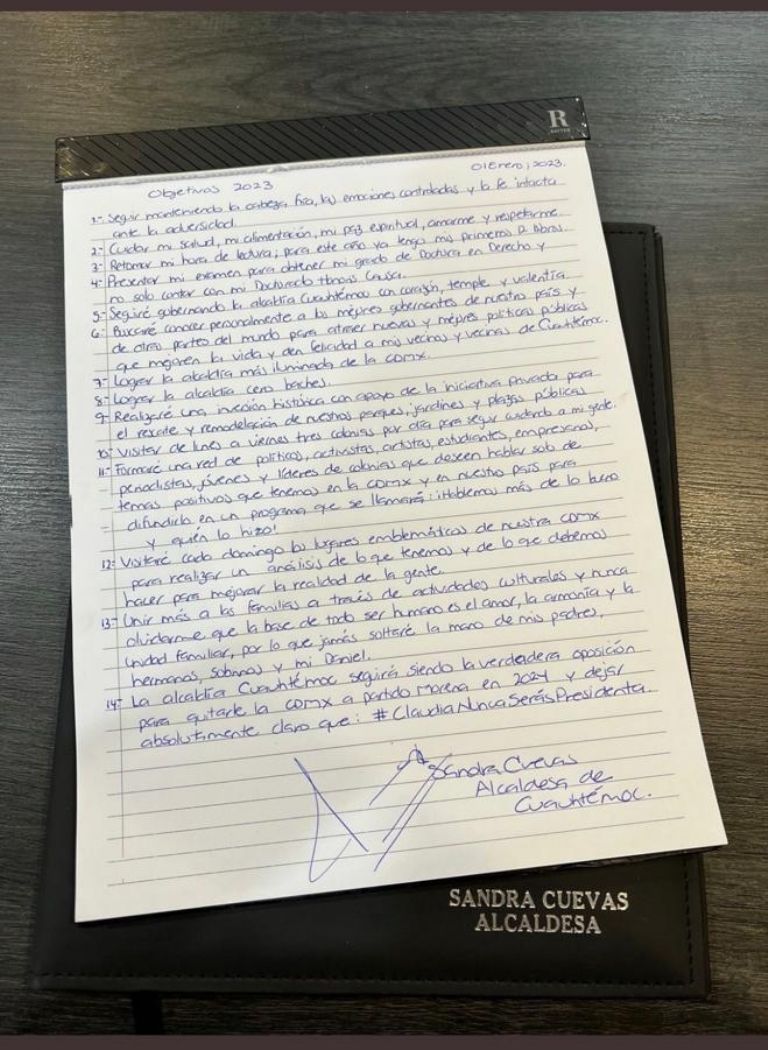 R
01 Enero, 2023.
Objetivos 2023
1.- Seguir manteniendo la cabeza fría, las emociones controladas y la fe intacta
ante la adversidad.
2.- Cuidar mi salud, mi alimentación, mi paz espiritual, amarme y respetarme.
3.- Retomar mi hora de lectura; para este año ya tengo mis primeros 12 libros.
4.- Presentar mi examen para obtener mi grado de Doctora en Derecho y
no solo contar con mi Doctorado Honoris Causa.
5.- Seguiré gobernando la alcaldía Cuauhtémoc con corazón, temple y valentía
6.- Buscaré conocer personalmente a los mejores gobernantes de nuestro país y
de otras partes del mundo para atraer nuevas y mejores políticas públicas
que mejoren la vida y den felicidad a mis vecinos y vecinas de Cuauhtémoc.
7.- Lograr la alcaldía más iluminada de la CDMX.
8.- Lograr la alcaldía cero baches.
9.- Realizaré una inversión histórica con apoyo de la iniciativa privada para
el rescate y remodelación de nuestros parques, jardines y plazas públicas
10.- Visitar de lunes a viernes tres colonias por día para seguir cuidando a mi gente.
11.- Formaré una red de políticos, activistas, artistas, estudiantes, empresarios,
periodistas, jóvenes y líderes de colonias que deseen hablar solo de
temas positivos que tenemos en la CDMX y en nuestro país para
difundirla en un programa que se llamará: ¡Hablemos más de lo bueno
y quién lo hizo!
12.- Visitaré cada domingo los lugares emblemáticos de nuestra CDMX
para realizar un análisis de lo que tenemos y de lo que debemos
hacer para mejorar la realidad de la gente.
13.- Unir más a las familias a través de actividades culturales y nunca
olvidarme que la base de todo ser humano es el amor, la armonía y la
unidad familiar, por lo que jamás soltaré la mano de mis padres,
hermanos, sobrinos y mi Daniel.
14.- La alcaldía Cuauhtémoc seguirá siendo la verdadera oposición
para quitarle la CDMX a partido Morena en 2024 y dejar
absolutamente claro que: #ClaudiaNuncaSerásPresidenta.
Sandra Cuevas
Alcaldesa de
Cuauhtémoc.
SANDRA CUEVAS
ALCALDESA